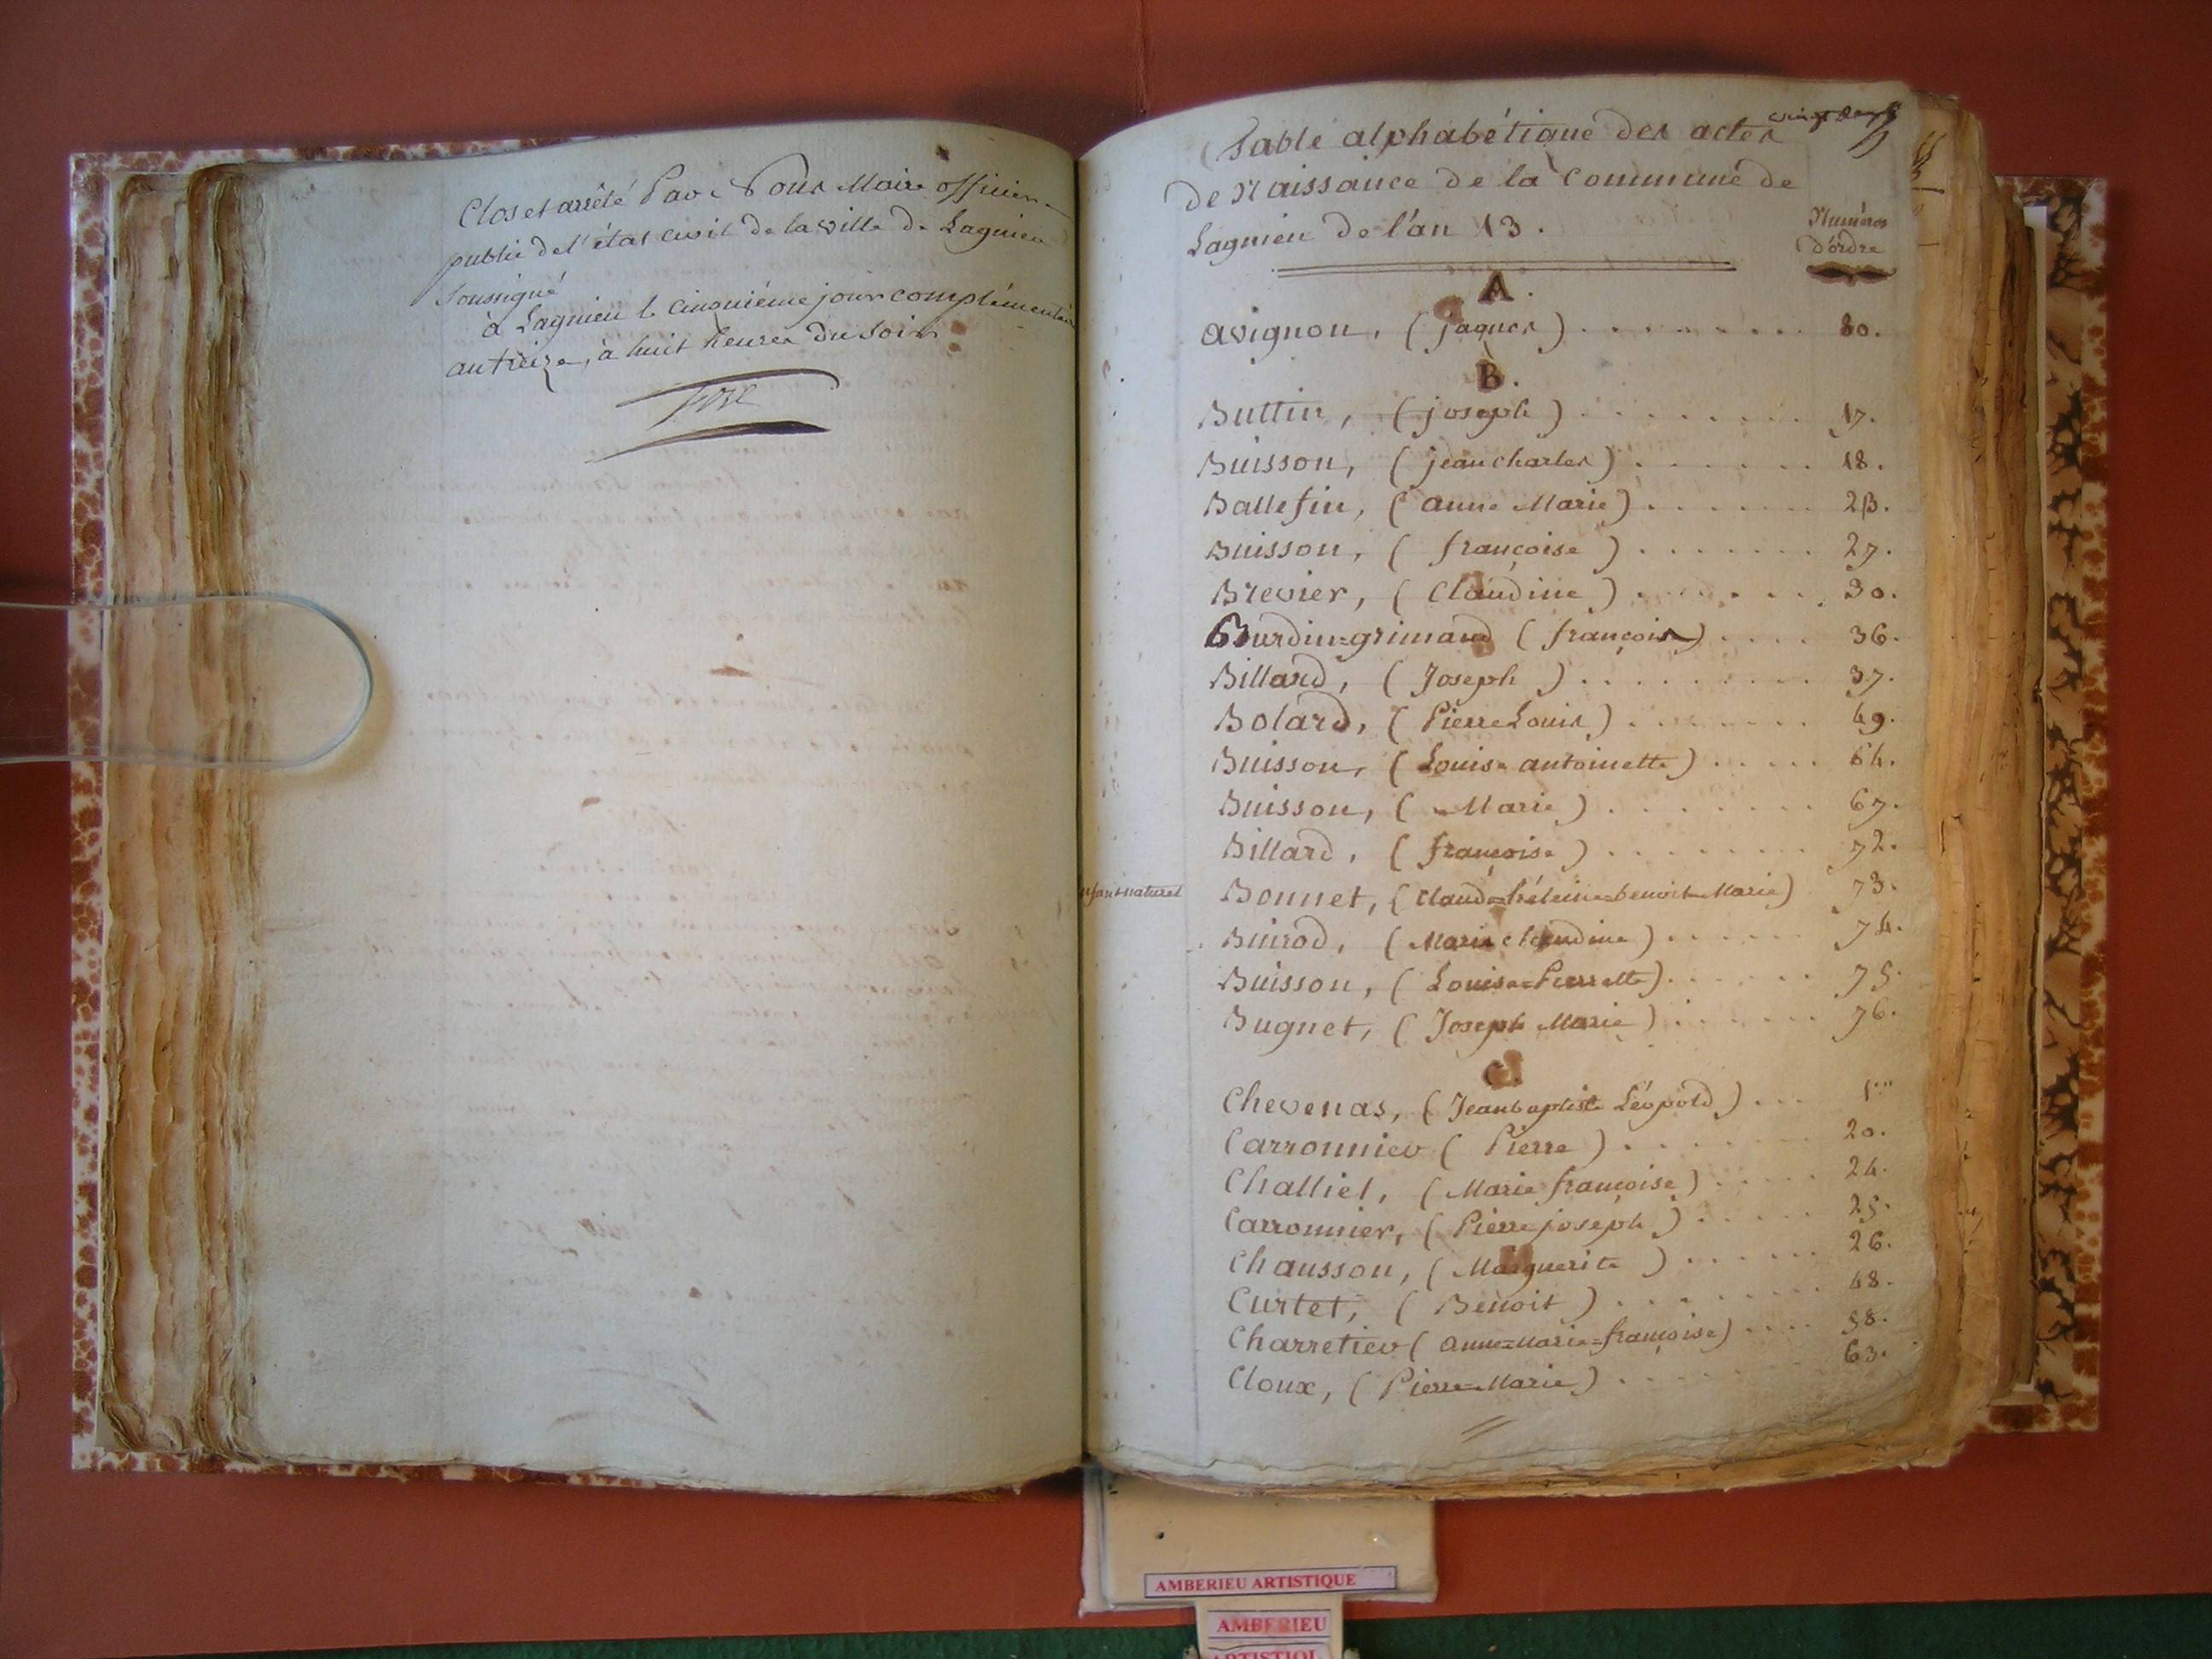 Clos et arrêté Par Nous Maire officier
public de l'état civil de la ville de Lagnieu
soussigné
à Lagnieu le cinquième jour complémentaire
an treize, à huit heures du soir
Table alphabétique des actes
de Naissance de la Commune de
Lagnieu de l'an 13.
Numéros
D'ordre
A.
avignon, (jaques) . . . . . . . . . 80.
B.
Buttin, (joseph) . . . . . . . . 17.
Buisson, (jean charles) . . . . . . . 18.
Ballefin, (anne Marie) . . . . . . . 23.
Buisson, (françoise) . . . . . . . 27.
Brevier, (Claudine) . . . . . . . 30.
Burdin=grimaud (françois) . . . . 36.
Billard, (Joseph) . . . . . . . . . 37.
Bolard, (Pierre Louis) . . . . . . . . 49.
Buisson, (Louise antoinette) . . . . . 64.
Buisson, (Marie) . . . . . . . . 67.
Billard, (françoise) . . . . . . . . 72.
enfant naturel
Bonnet, (Claude=héleine=benoit=Marie) 73.
Buirod, (Marie claudine) . . . . . . 74.
Buisson, (Louise=Pierrette) . . . . . . 75.
Bugnet, (Joseph Marie) . . . . . . . 76.
C.
Chevenas, (Jean baptiste Léopold) . . . 1er
Carronnier (Pierre) . . . . . . . 20.
Challiel, (Marie françoise) . . . . . 24.
Carronnier, (Pierre joseph) . . . . . 25.
Chausson, (Marguerite) . . . . . . 26.
Curtet, (Benoit) . . . . . . . . . 48.
Charretier (anne=marie=françoise) . . . . 58.
Cloux, (Pierre=Marie) . . . . . 63.
AMBERIEU ARTISTIQUE
AMBERIEU